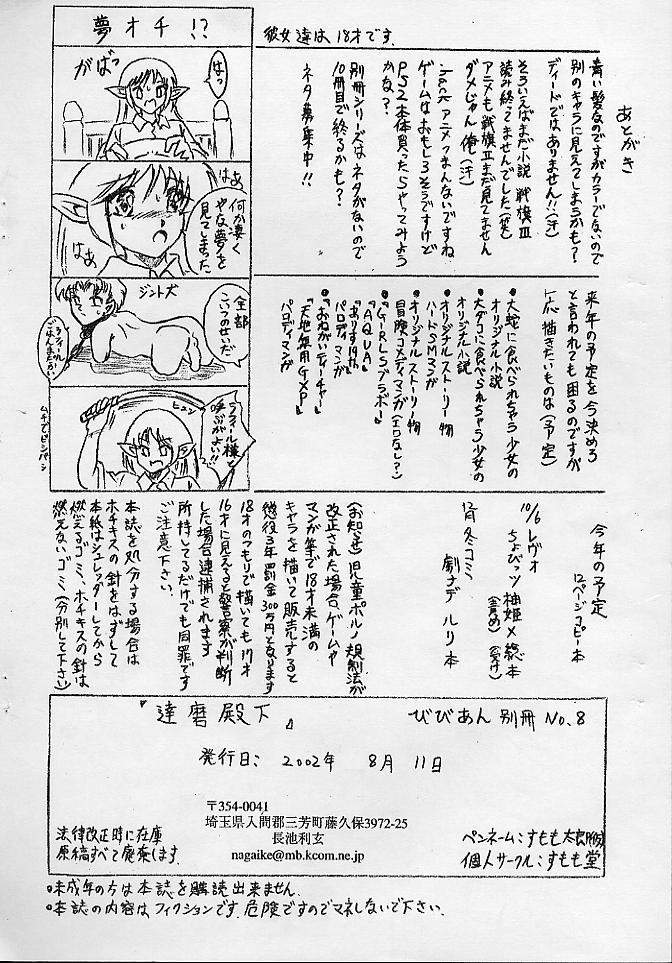 夢オチ !?
がばっ
はっ
はあ
何か凄く
やな夢を
見てしまった
はあ
ジント犬
全部
こいつのせいだ
ラフィール
ごはんまだかい
ラフィール様と
呼ぶがよい!!
ヒュン
ムチでピシパシ
彼女達は18才です.
あとがき
青い髪なのですがカラーでないので
別のキャラに見えてしまうかも?
ディードではありません!!(汗)
そういえばまだ小説 戦旗III
読み終ってませんでした(笑)
アニメも戦旗IIまだ見てません
ダメじゃん俺(汗)
.hackアニメつまんないですね
ゲームはおもしろそうですけど
PS2本体買ったらやってみよう
かな?
別冊シリーズはネタがないので
10冊目で終るかも??
ネタ募集中!!
来年の予定を今決めろ
と言われても困るのですが
一応描きたいものは(予定)
•大蛇に食べられちゃう少女の
オリジナル小説
•大ダコに食べられちゃう少女の
オリジナル小説
•オリジナルストーリー物
ハードSMマンガ
•オリジナルストーリー物
冒険コメディマンガ(エロなし?)
•『GIRLSブラボー』
『AQUA』
『ありす19th』
パロディマンガ
•『おねがいティーチャー』
『天地無用GXP』
パロディマンガ
今年の予定
12ページコピー本
10/6 レヴォ
ちょびッツ 柚姫×総本
(責め) (受け)
12月冬コミ
劇ナデ ルリ本
(お知らせ) 児童ポルノ規制法が
改正された場合、ゲームや
マンガ等で18才未満の
キャラを描いて販売すると
懲役3年罰金300万円となります
18才のつもりで描いても17才
16才に見えると警察が判断
した場合逮捕されます
所持してるだけでも同罪です
ご注意下さい.
本誌を処分する場合は
ホチキスの針をはずして
本紙はシュレッダーしてから
燃えるゴミ、ホチキスの針は
燃えないゴミ(分別して下さい)
『達磨殿下』
びびあん 別冊 No.8
発行日: 2002年 8月 11日
〒354-0041
埼玉県入間郡三芳町藤久保3972-25
長池利玄
nagaike@mb.kcom.ne.jp
法律改正時に在庫
原稿すべて廃棄します.
ペンネーム:すもも太郎(仮)
個人サークル:すもも堂
•未成年の方は本誌を購読出来ません.
•本誌の内容はフィクションです.危険ですのでマネしないで下さい.